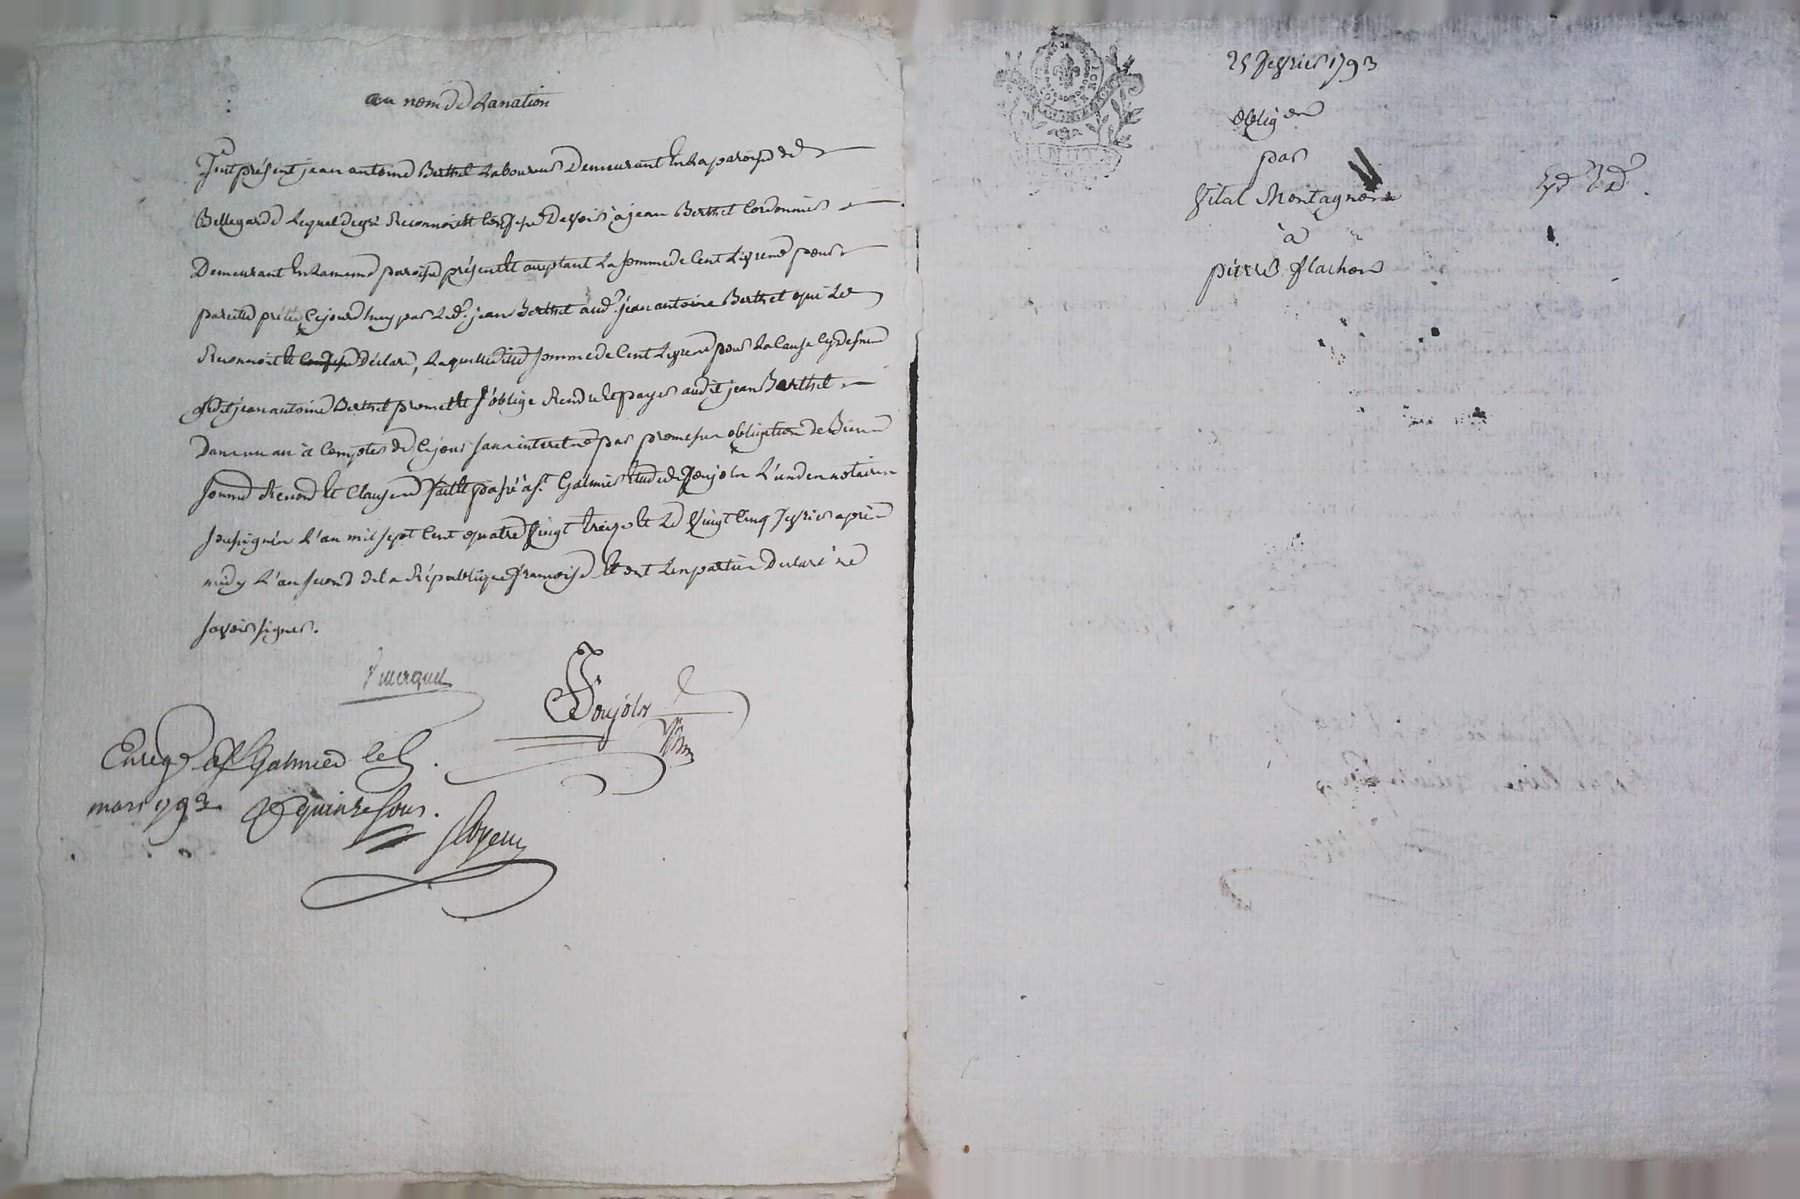 au nom de La nation
fut présent jean antoine Berthet Laboureur Demeurant En La paroisse de
Bellegarde Lequel de gré Reconnoit et Confesse Devoir à jean Berthet Cordonnier
Demeurant En La meme paroisse présent et acceptant La somme de Cent Livres pour
pareille prêtée Cejourd'huy par Led. jean Berthet aud. jean antoine Berthet qui Le
Reconnoit et Confesse Déclare, Laquelle ditte somme de Cent Livres pour La Cause Cy dessus
Ledit jean antoine Berthet promet et s'oblige Rendre et payer audit jean Berthet
Dans un an à Compter de Ce jour sans interet par promesse obligation de Biens
soumis Renond et Clauses fait et passé à St. Galmier Etude de Goujoln L'un des notaires
soussignés L'an mil sept Cent quatre Vingt treize et Le Vingt Cinq fevrier après
midy L'an second de La République françoise Et ont Les parties Déclaré ne
savoir signer.
Goujoln
Enreg. à St Galmier le 6.
mars 1793 Rx quinze sous.
25 fevrier 1793
oblig on
par
Vital Montagnon
à
pierre flachon